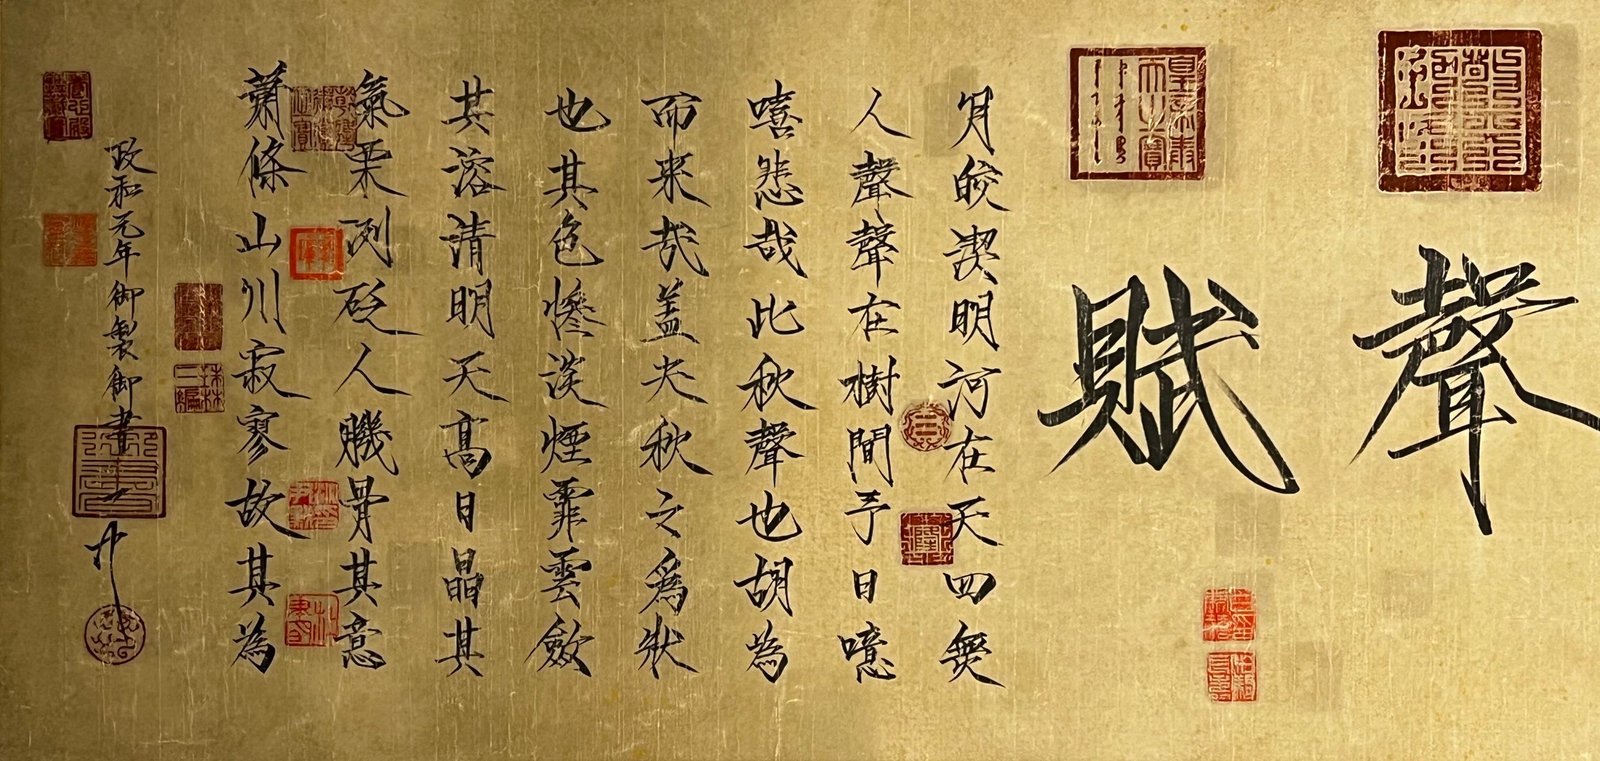 聲
賦
月皎潔明河在天四無
人聲聲在樹間予曰噫
嘻悲哉此秋聲也胡為
而來哉蓋夫秋之為狀
也其色慘淡煙霏雲斂
其容清明天高日晶其
氣栗冽砭人肌骨其意
蕭條山川寂寥故其為
政和元年御製御書